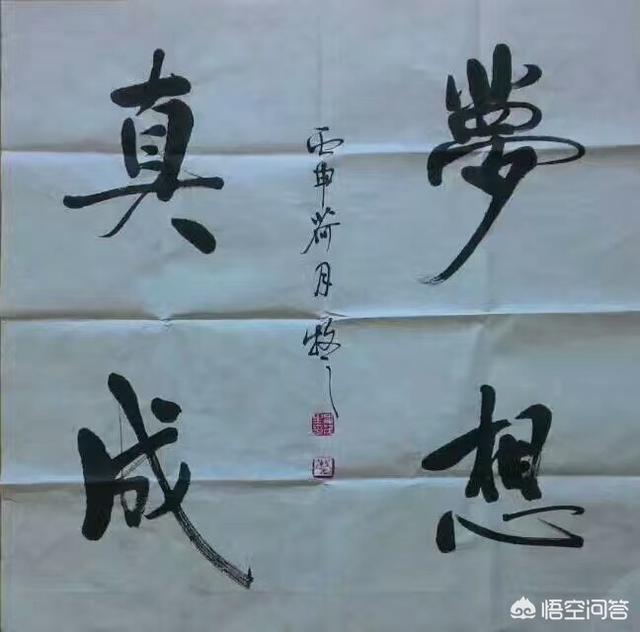 夢想
真成
丙申荷月牧之
悟空问答